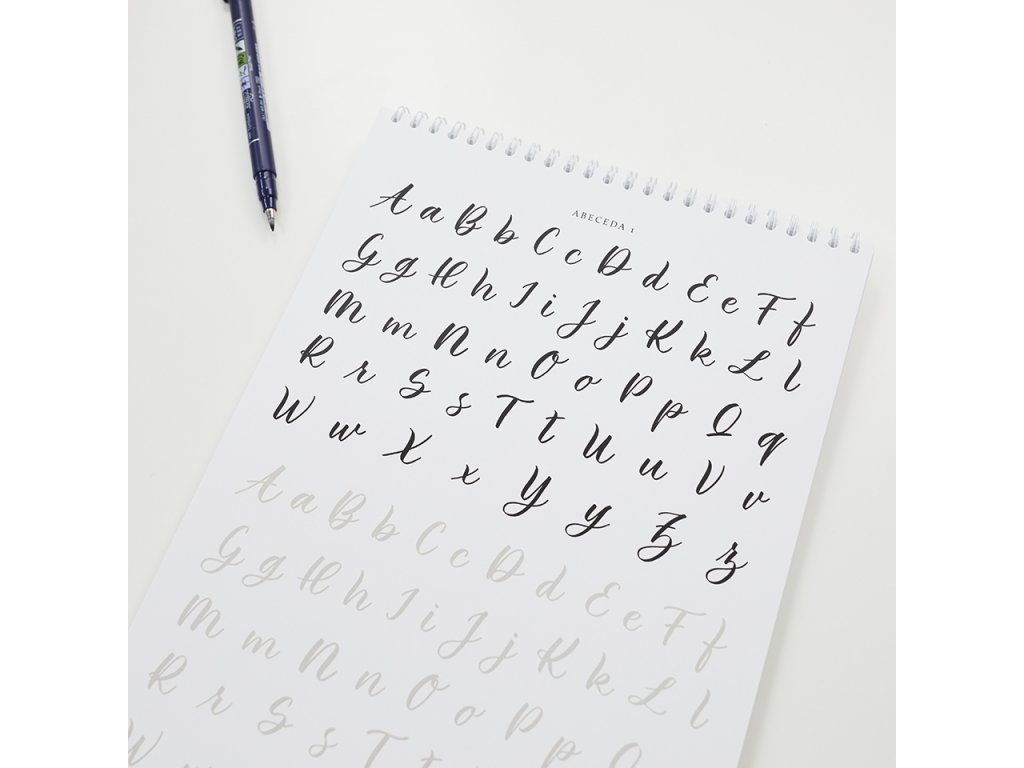 ABECEDA 1
A a B b C c D d E e F f
G g H h I i J j K k L l
M m N n O o P p Q q
R r S s T t U u V v
W w X x Y y Z z
A a B b C c D d E e F f
G g H h I i J j K k L l
M m N n O o P p Q
R r S s T
W